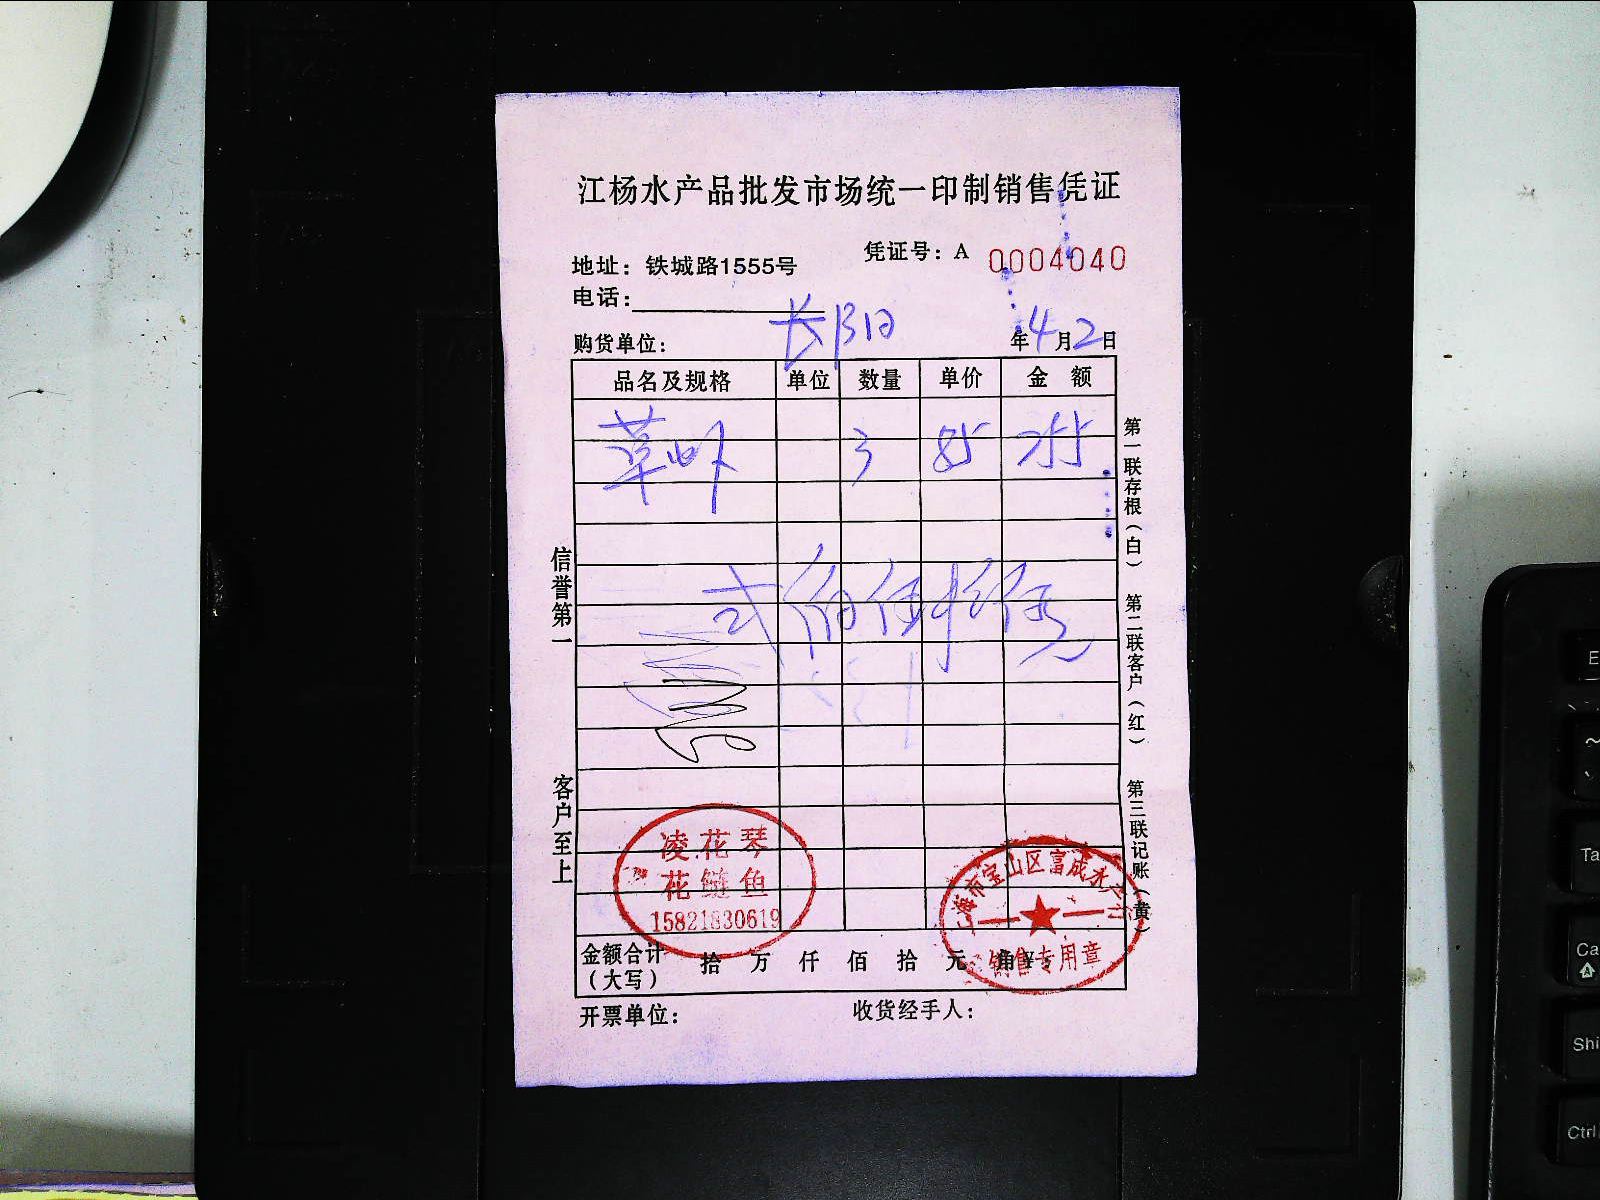 江杨水产品批发市场统一印制销售凭证
地址：铁城路1555号
凭证号：A 0004040
电话：
购货单位：
年4月2日
品名及规格 单位 数量 单价 金 额
草虾 3 85 255
弍佰伍拾伍元
信誉第一
客户至上
第一联存根（白）
第二联客户（红）
第三联记账（黄）
凌花琴
花鲢鱼
15821830619
上海市宝山区富成水产行
销售专用章
金额合计
（大写）
拾 万 仟 佰 拾 元 角
开票单位：
收货经手人：
E
Ta
Ca
Shi
Ctrl